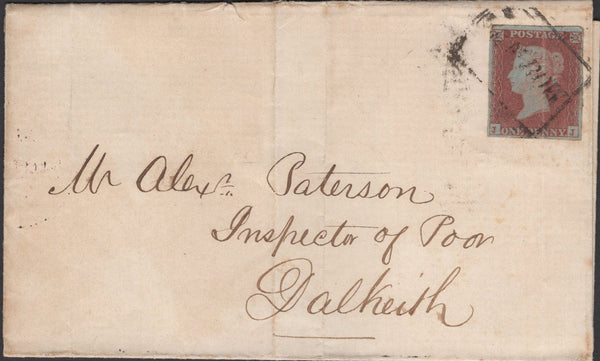 POSTAGE
J ONE PENNY J
Mr Alexr. Paterson
Inspector of Poor
Dalkeith